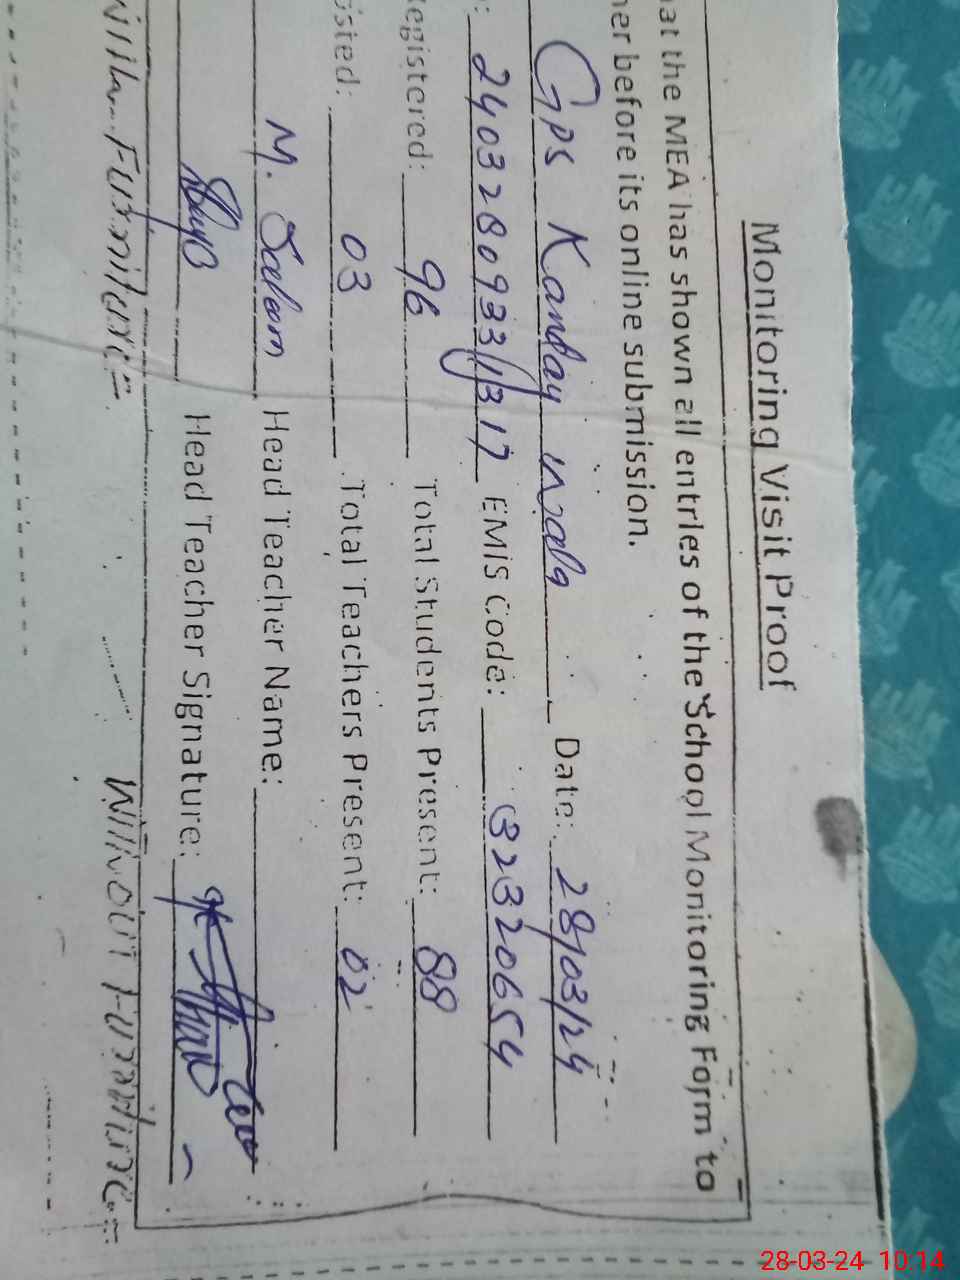 Monitoring Visit Proof
hat the MEA has shown all entries of the School Monitoring Form to
her before its online submission.
GPS Kanday wala Date: 28/03/24
: 2403280933/1317 EMIS Code: 32320654
Registered: 96 Total Students Present: 88
osted: 03 Total Teachers Present: 02
M. Saleem Head Teacher Name:
Head Teacher Signature:
With Furniture= Without Furniture=
28-03-24 10:14